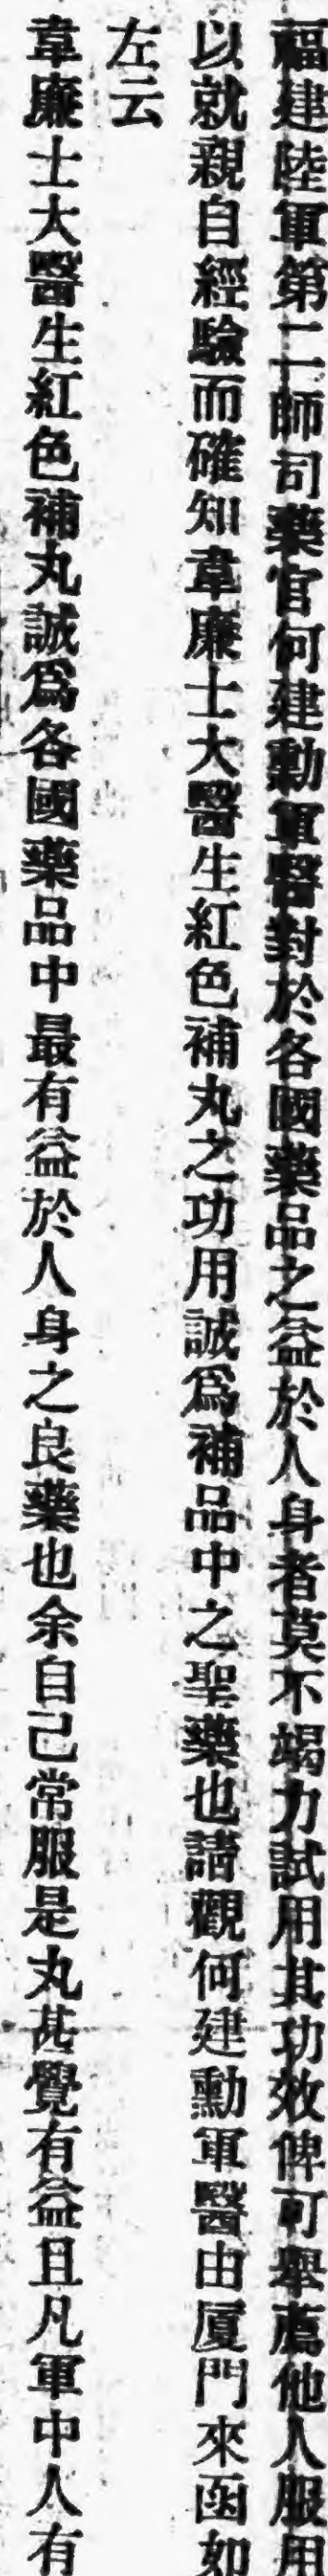 福建陸軍第二師司藥官何建勳軍醫對於各國藥品之益於人身者莫不竭力試用其功效俾可舉薦他人服用
以就親自經驗而確知韋廉士大醫生紅色補丸之功用誠爲補品中之聖藥也請觀何建勳軍醫由厦門來函如
左云
韋廉士大醫生紅色補丸誠爲各國藥品中最有益於人身之良藥也余自己常服是丸甚覺有益且凡軍中人有